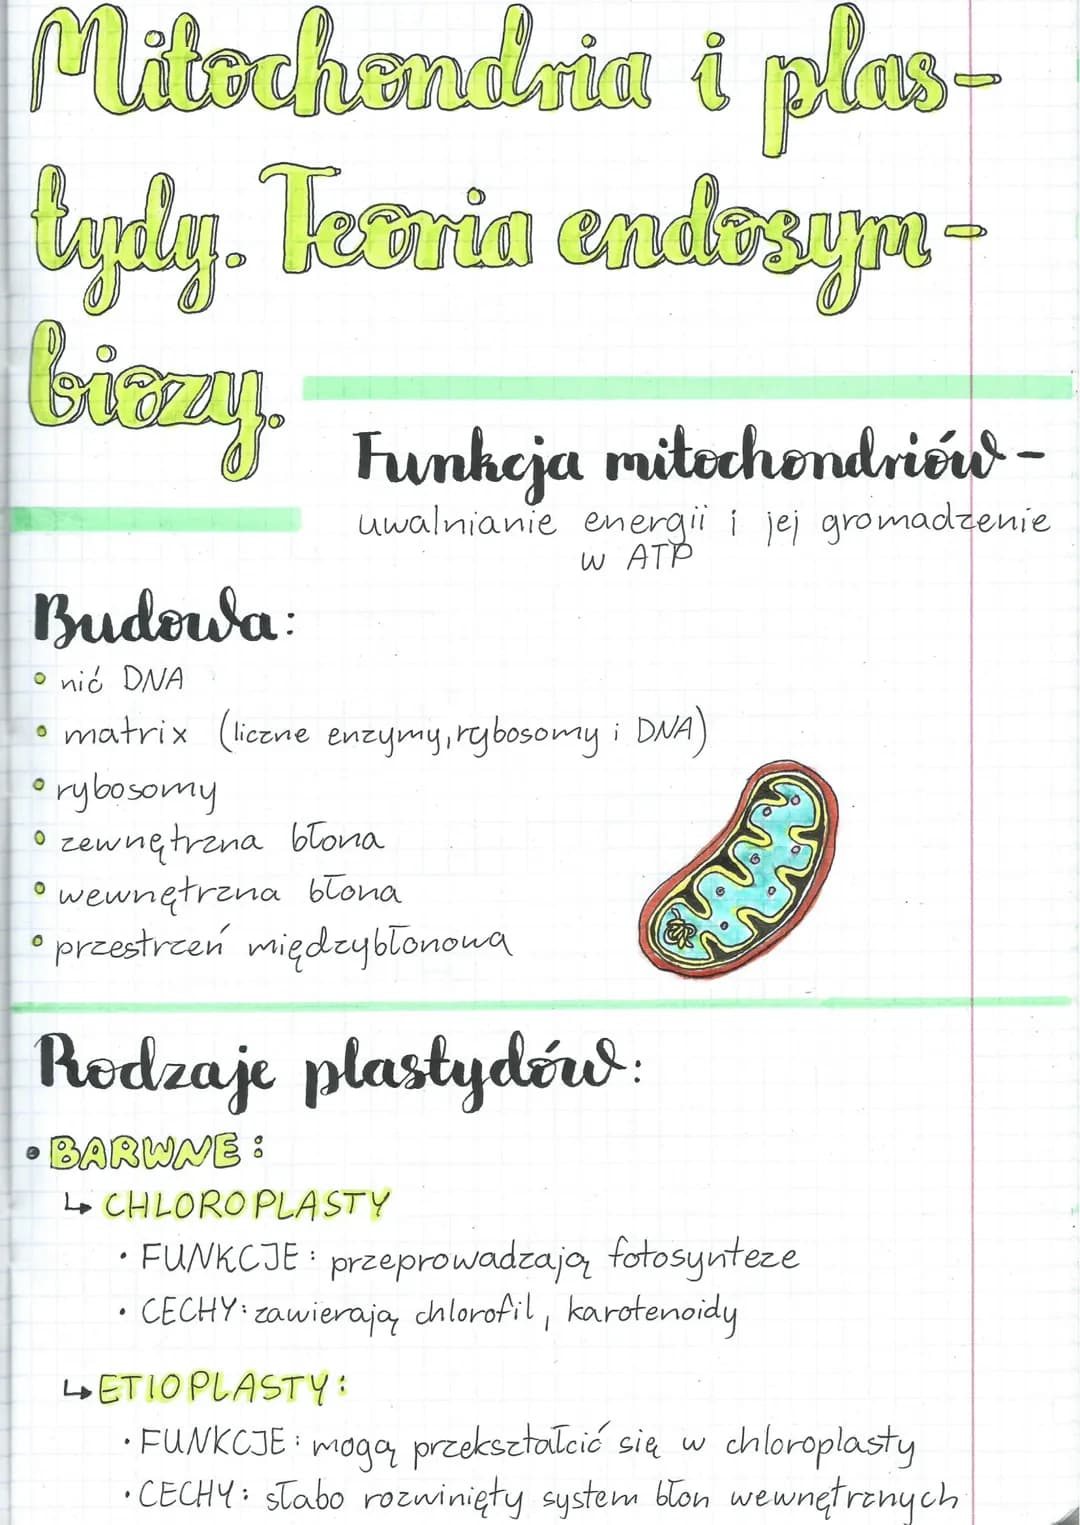 Mitochondria i plas-
tydy. Teoria endosym-
biozy.
Funkcja mitochondriów -
uwalnianie energii i jej gromadzenie
w ATP
Budowa:
• nić DNA
• matrix (liczne enzymy, rybosomy i DNA)
• rybosomy
• zewnętrzna błona
• wewnętrzna błona
• przestrzeń międzybłonowa
Rodzaje plastydów:
• BARWNE:
↳ CHLOROPLASTY
• FUNKCJE: przeprowadzają fotosynteze
• CECHY: zawierają chlorofil, karotenoidy
↳ ETIOPLASTY:
• FUNKCJE: mogą przekształcić się w chloroplasty
• CECHY: słabo rozwinięty system błon wewnętrznych